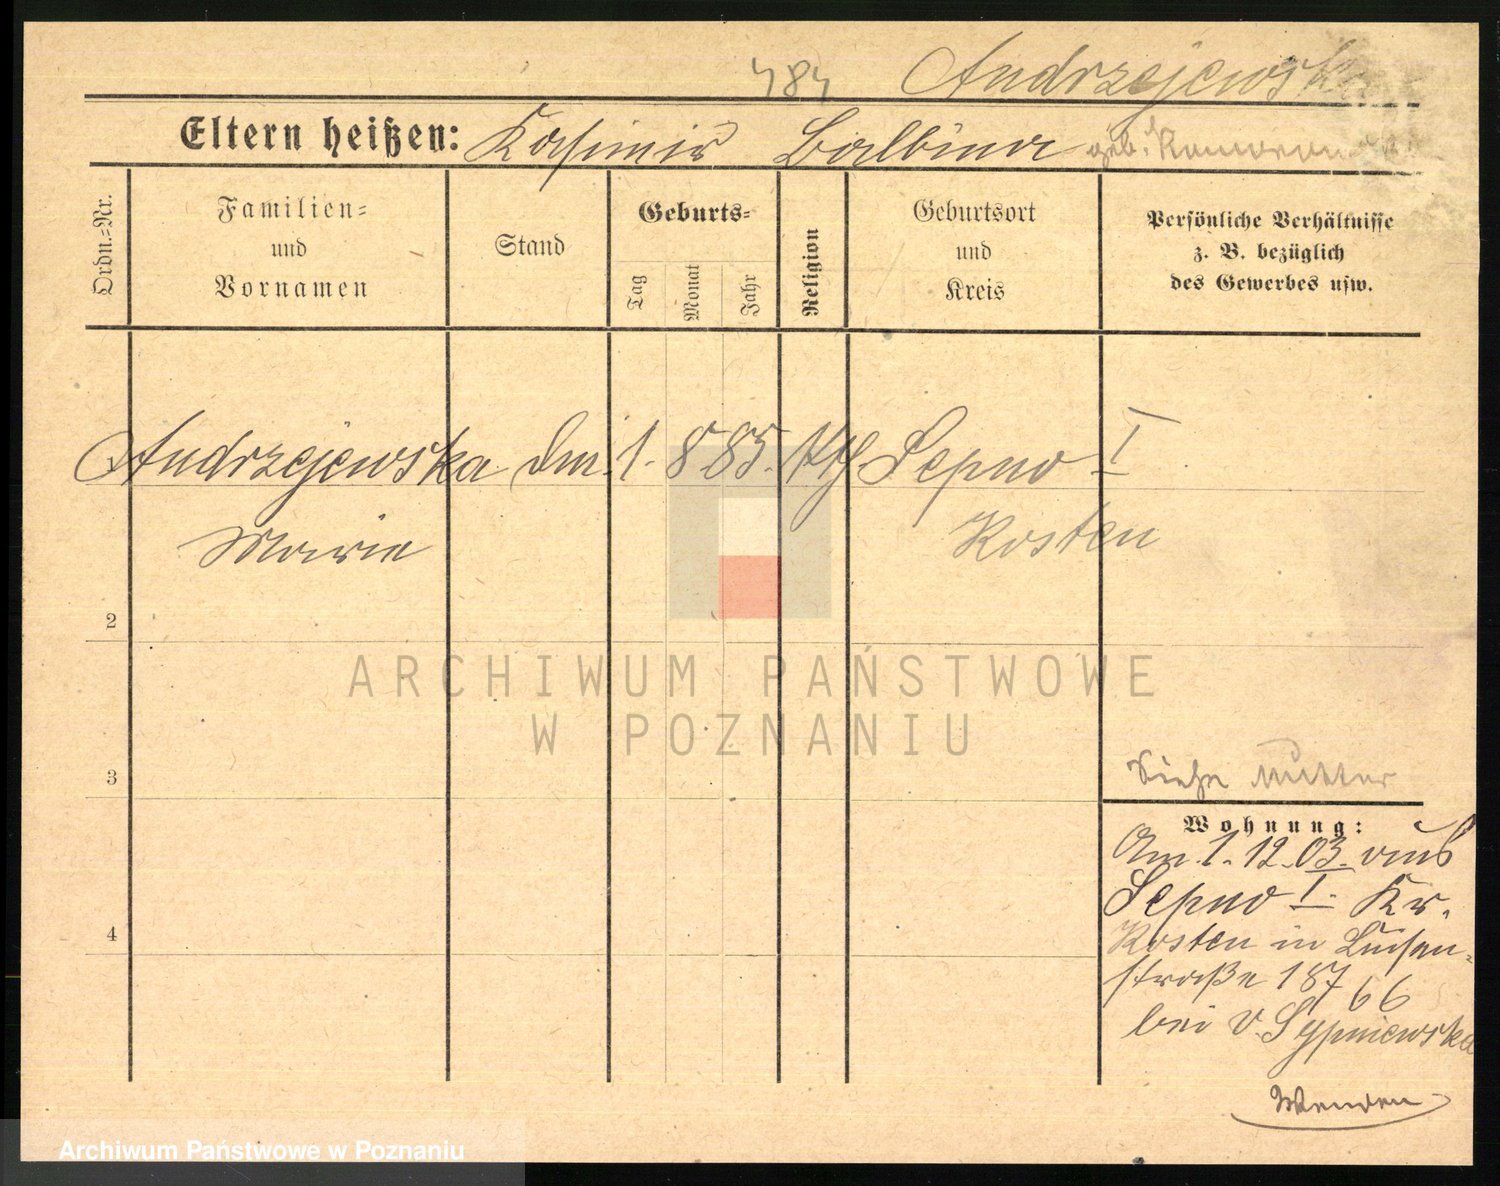 484 Andrzejewska
Eltern heißen: Kasimir Balbina geb.
Ordn.=Nr.
Familien=
und
Vornamen
Stand
Geburts=
Tag
Monat
Jahr
Religion
Geburtsort
und
Kreis
Persönliche Verhältnisse
z. B. bezüglich
des Gewerbes usw.
1 Andrzejewska 1. 8 85. kth Sepno I
Marie Kosten
2
3
4
Siehe Mutter
Wohnung:
Am 1. 12. 03. aus
Sepno I. Kr.
Kosten in Luisen-
straße 187
66
bei v. Sypniewska
Wenden
ARCHIWUM PAŃSTWOWE
W POZNANIU
Archiwum Państwowe w Poznaniu